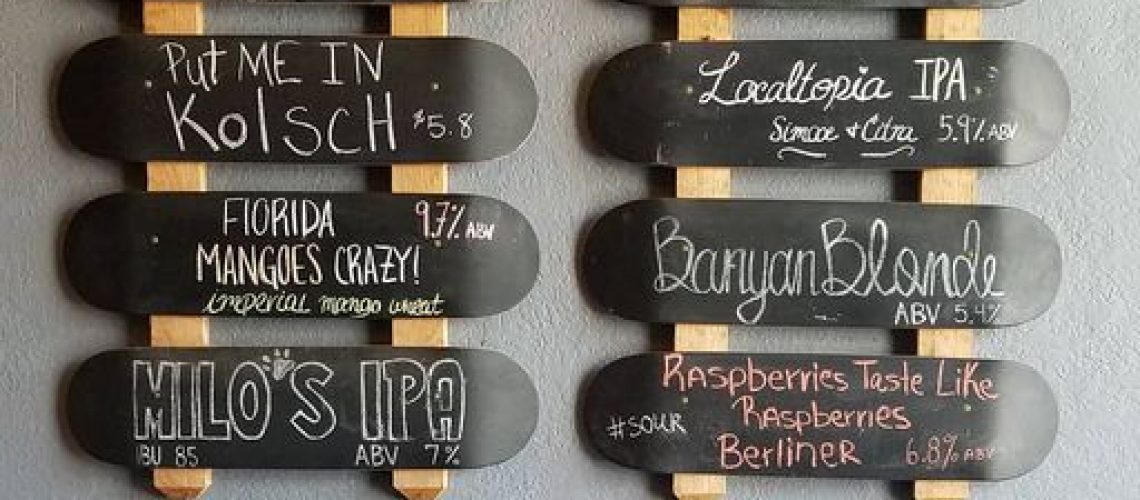 Put ME IN
KolSCH $5.8
FlORIDA 9.7% ABV
MANGOES CRAZY!
imperial mango wheat
MILO'S IPA
IBU 85 ABV 7%
Localtopia IPA
Simcoe & Citra 5.9% ABV
Banyan Blonde
ABV 5.4%
RAspberries Taste Like
RAspberries
#SOUR
BerlineR 6.8% ABV